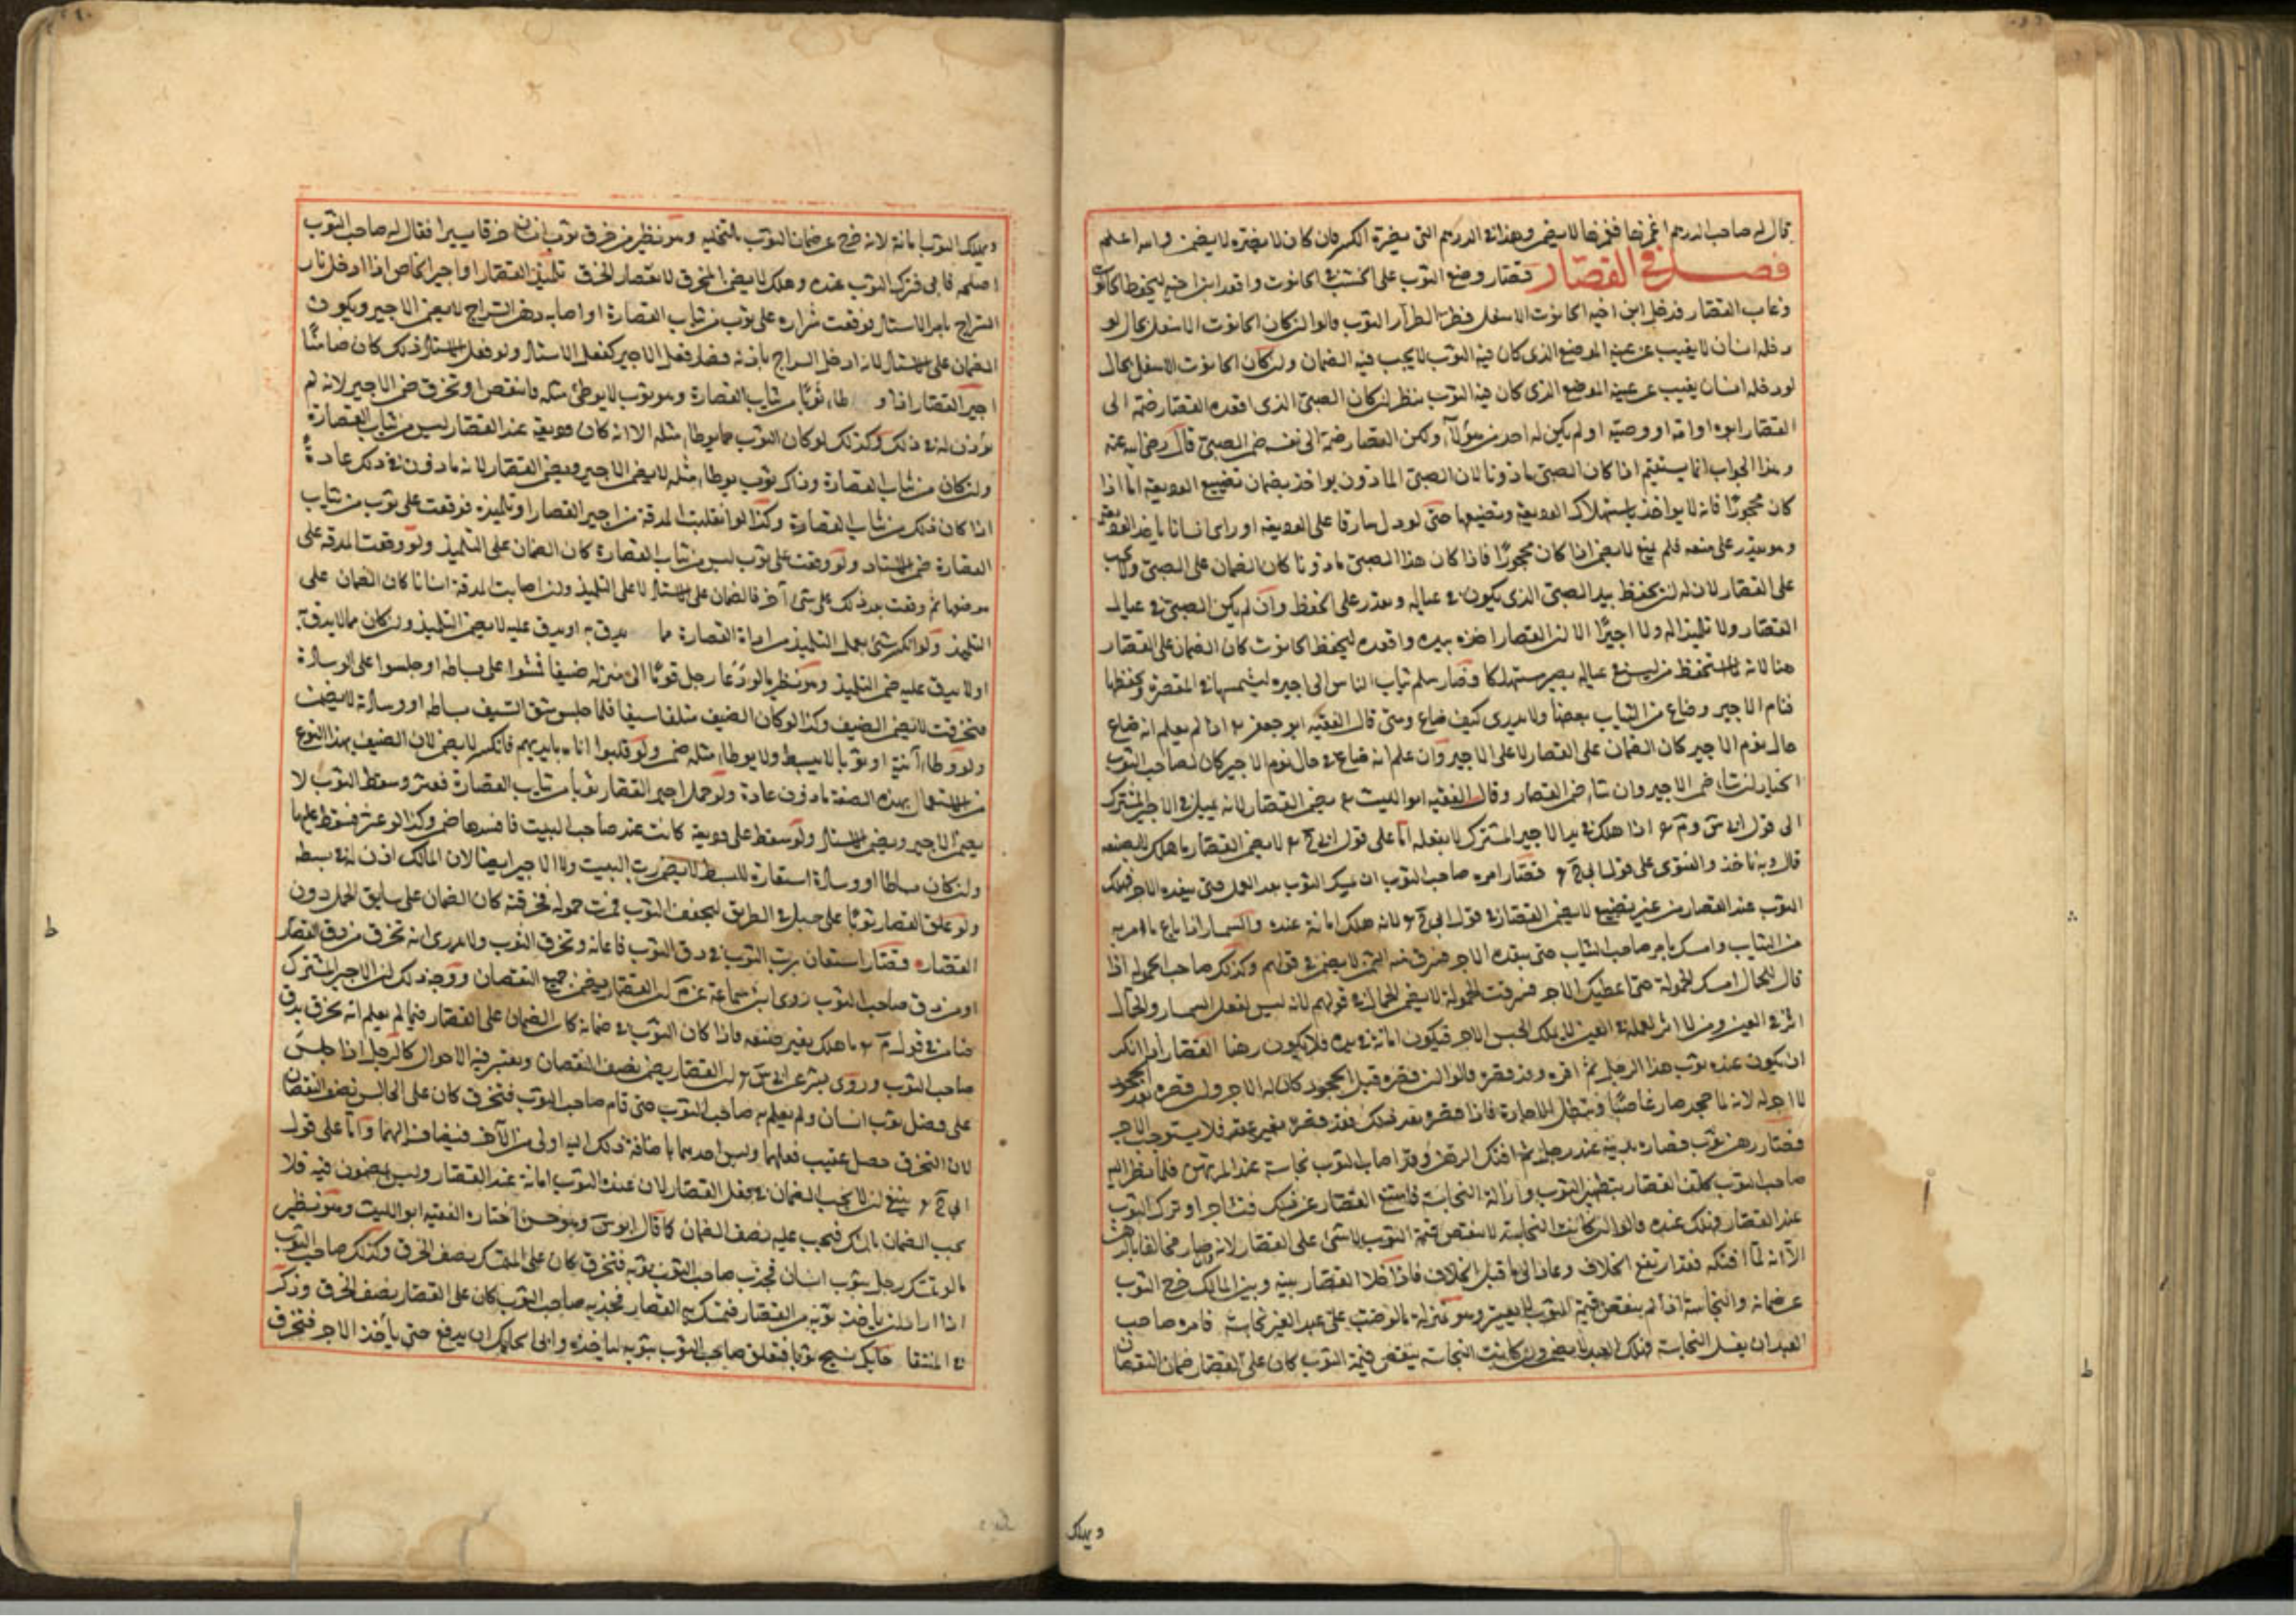 قال له صاحب الدرهم اغمزها فغمزها لا يضمن وهذا في الدرهم التي يضره الكسر فان كان لا يضره لا يضمن والله اعلم
فصل في القصار قصار وضع الثوب على الخشب في الحانوت واقعد ابن اخيه ليحفظ الحانوت
وغاب القصار فدخل ابن اخيه الحانوت الاسفل فطر الطرار الثوب قالوا ان كان الحانوت الاسفل بحال لو
دخله انسان لا يغيب عن عينه الموضع الذي كان فيه الثوب لا يجب فيه الضمان وان كان الحانوت الاسفل بحال
لو دخله انسان يغيب عن عينه الموضع الذي كان فيه الثوب ينظر ان كان الصبي الذي اقعده القصار ضمه الى
القصار ابوه او امه او وصيه او لم يكن له احد من هؤلاء ولكن القصار ضمه الى نفسه ضمن الصبي قال رضي الله عنه
وهذا الجواب انما يستقيم اذا كان الصبي ماذونا لان الصبي الماذون يواخذ بضمان تضييع الوديعة اما اذا
كان محجورا فانه لا يواخذ باستهلاك الوديعة وتضييعها حتى لو دل سارقا على الوديعة او راى انسانا ياخذ الوديعة
وهو يقدر على منعه فلم يمنع لا يضمن اذا كان محجورا فاذا كان هذا الصبي ماذونا كان الضمان على الصبي ولا يجب
على القصار لان له ان يحفظ بيد الصبي الذي يكون في عياله ويقدر على الحفظ وان لم يكن الصبي في عيال
القصار ولا تلميذا له ولا اجيرا الا ان القصار اخذه بيده واقعده ليحفظ الحانوت كان الضمان على القصار
هنا لانه باستحفظ من ليس في عياله يصير مستهلكا قصار سلم ثياب الناس الى اجيره ليشمسها في المقصرة ويحفظها
فنام الاجير وضاع من الثياب بعضها ولا يدري كيف ضاع ومتى قال الفقيه ابو جعفر اذا لم يعلم انه ضاع
حال نوم الاجير كان الضمان على القصار لا على الاجير وان علم انه ضاع في حال نوم الاجير كان لصاحب الثوب
الخيار ان شاء ضمن الاجير وان شاء ضمن القصار وقال الفقيه ابو الليث يضمن القصار لانه يميل في الاجير المشترك
الى قول ابي س وم اذا هلك في يد الاجير المشترك لا بفعله اما على قول ابي ح لا يضمن القصار ما هلك لا بصنعه
قال وبه ناخذ والفتوى على قول ابي ح قصار امره صاحب الثوب ان يمسك الثوب بعد العمل حتى ينقده الاجر فهلك
الثوب عند القصار من غير تضييع لا يضمن القصار في قول ابي ح لانه هلك امانة عنده والسمسار اذا باع ما امر به
من الثياب وامسك بامر صاحب الثياب حتى ينقده الاجر فسرق منه الثمن لا يضمن في قولهم وكذلك صاحب الحمولة اذا
قال للحمال امسك الحمولة حتى اعطيك الاجر فسرقت الحمولة لا يضمن الحمال في قولهم لانه ليس لفعل السمسار والحمال
اثر في العين ومن لا اثر لعمله في العين لا يملك الحبس بالاجر فيكون امانة في يده فلا يكون رهنا القصار اذا انكر
ان يكون عنده ثوب هذا الرجل ثم اقر به وقد قصره قالوا ان قصره قبل الجحود كان له الاجر وان قصره بعد الجحود
لا اجر له لانه لما جحد صار غاصبا وتبطل الاجارة فاذا قصره بعد ذلك فقد قصره بغير عقد فلا يستوجب الاجر
قصار رهن ثوب قصاره بدينه عند رجل ثم افتك الرهن وقد اصاب الثوب نجاسة عند المرتهن فلما نظر اليه
صاحب الثوب كلف القصار بتطهير الثوب وازالة النجاسة فامتنع القصار عن ذلك فتشاجرا وترك الثوب
عند القصار فهلك عنده قالوا ان كانت النجاسة لا تنقص قيمة الثوب لا شئ على القصار لانه وان صار مخالفا بالرهن
الا انه لما افتكه فقد ارتفع الخلاف وعاد الى ما قبل الخلاف فاذا خلا القصار بينه وبين المالك خرج الثوب
عن ضمانه والنجاسة اذا لم ينقص قيمة الثوب لا يعتبر وهو بمنزلة ما لو صب على عبد الغير نجاسة فامره صاحب
العبد ان يغسل النجاسة فهلك العبد لا يضمن وان كانت النجاسة ينقص قيمة الثوب كان على القصار ضمان النقصان
ويهلك
ويهلك الثوب امانة لانه خرج عن ضمان الثوب بالتخلية وهو نظير من خرق ثوب انسان خرقا يسيرا فقال له صاحب الثوب
اصلحه فابى فترك الثوب عنده وهلك لا يضمن المخرق الا نقصان الخرق تلميذ القصار او اجير الخاص اذا ادخل نار
السراج بامر الاستاذ فوقعت شرارة على ثوب من ثياب القصارة او اصابه دهن السراج لا يضمن الاجير ويكون
الضمان على الاستاذ لانه ادخل السراج باذنه فصار فعل الاجير كفعل الاستاذ ولو فعل الاستاذ ذلك كان ضامنا
اجير القصار اذا وطاء ثوبا من ثياب القصارة وهو ثوب لا يوطئ مثله فانتقص او تخرق ضمن الاجير لانه لم
يؤذن له في ذلك وكذلك لو كان الثوب مما يوطاء مثله الا انه كان وديعة عند القصار ليس من ثياب القصارة
وان كان من ثياب القصارة وذاك ثوب يوطاء مثله لا يضمن الاجير ويضمن القصار لانه ماذون في ذلك عادة
اذا كان ذلك من ثياب القصارة وكذا لو انفلتت المدقة من اجير القصار او تلميذه فوقعت على ثوب من ثياب
القصارة ضمن الاستاد ولو وقعت على ثوب ليس من ثياب القصارة كان الضمان على التلميذ ولو وقعت المدقة على
موضعها ثم وقعت بعد ذلك على شئ آخر فالضمان على الاستاذ لا على التلميذ وان اصابت المدقة انسانا كان الضمان على
التلميذ ولو انكسر شئ بعمل التلميذ من اداة القصارة مما يدق به او يدق عليه لا يضمن التلميذ وان كان مما لا يدق به
او لا يدق عليه ضمن التلميذ وهو نظير ما لو دعا رجل قوما الى منزله ضيفا فمشوا على بساطه او جلسوا على الوسادة
فتخرقت لا يضمن الضيف وكذا لو كان الضيف متقلدا سيفا فلما جلس شق السيف بساطه او وسادته لا يضمن
ولو وطاء آنية او ثوبا لا يبسط ولا يوطاء مثله ضمن ولو قلبوا اناء بايديهم فانكسر لا يضمن لان الضيف بهذا النوع
من الاستعمال بهذه الصفة ماذون عادة ولو حمل اجير القصار ثوبا من ثياب القصارة فعثر وسقط الثوب لا
يضمن الاجير ويضمن الاستاذ ولو سقط على وديعة كانت عند صاحب البيت فافسدها ضمن وكذا لو عثر فسقط عليها
وان كان بساطا او وسادة استعاره للبسط لا يضمن رب البيت ولا الاجير ايضا لان المالك اذن له في بسطه
ولو علق القصار ثوبا على حبل في الطريق ليجفف الثوب فمرت حمولة فخرقته كان الضمان على سايق الحمل دون
القصار قصار استعان برب الثوب في دق الثوب فاعانه وتخرق الثوب ولا يدرى انه تخرق من دق القصار
او من دق صاحب الثوب روى ابن سماعة عن م ان القصار يضمن جميع النقصان ووجه ذلك ان الاجير المشترك
ضامن في قول م ما هلك بغير صنعه فاذا كان الثوب في ضمانه كان الضمان على القصار فيما لم يعلم انه تخرق بدق
صاحب الثوب وروى بشر عن ابي س ان القصار يضمن نصف النقصان ويعتبر فيه الاحوال كالرجل اذا جلس
على فضل ثوب انسان ولم يعلم به صاحب الثوب حتى قام صاحب الثوب فتخرق كان على الجالس نصف النقصان
لان التخرق حصل عقيب فعلهما وليس احدهما باضافة ذلك اليه اولى من الآخر فيضاف اليهما واما على قول
ابي ح ينبغي ان لا يجب الضمان بفعل القصار لان عنده الثوب امانة عند القصار وليس بمضمون فيه فلا
يجب الضمان بالشك فيجب عليه نصف الضمان كما قال ابو س وهو حسن اختاره الفقيه ابو الليث وهو نظير
ما لو تمسك رجل بثوب انسان فجذب صاحب الثوب ثوبه فتخرق كان على المتمسك نصف الخرق وكذلك صاحب الثوب
اذا اراد ان ياخذ ثوبه من القصار فتمسك به القصار فجذبه صاحب الثوب كان على القصار نصف الخرق وذكر
في المنتقا حايك نسج ثوبا فتعلق صاحب الثوب بثوبه لياخذه وابى الحايك ان يدفع حتى يأخذ الاجر فتخرق